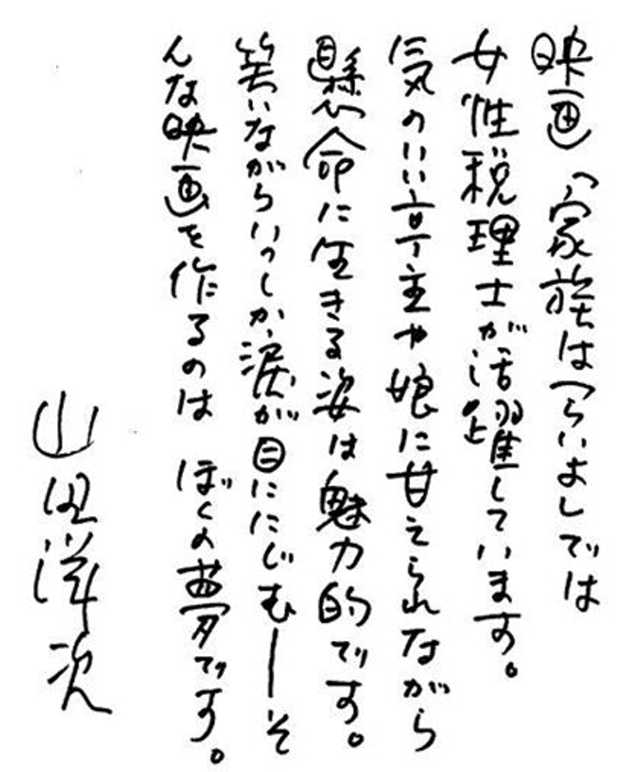 映画「家族はつらいよ」では
女性税理士が活躍しています。
気のいい亭主や娘に甘えられながら
懸命に生きる姿は魅力的です。
笑いながらいつしか涙が目ににじむ―そ
んな映画を作るのは ぼくの夢です。
山田洋次